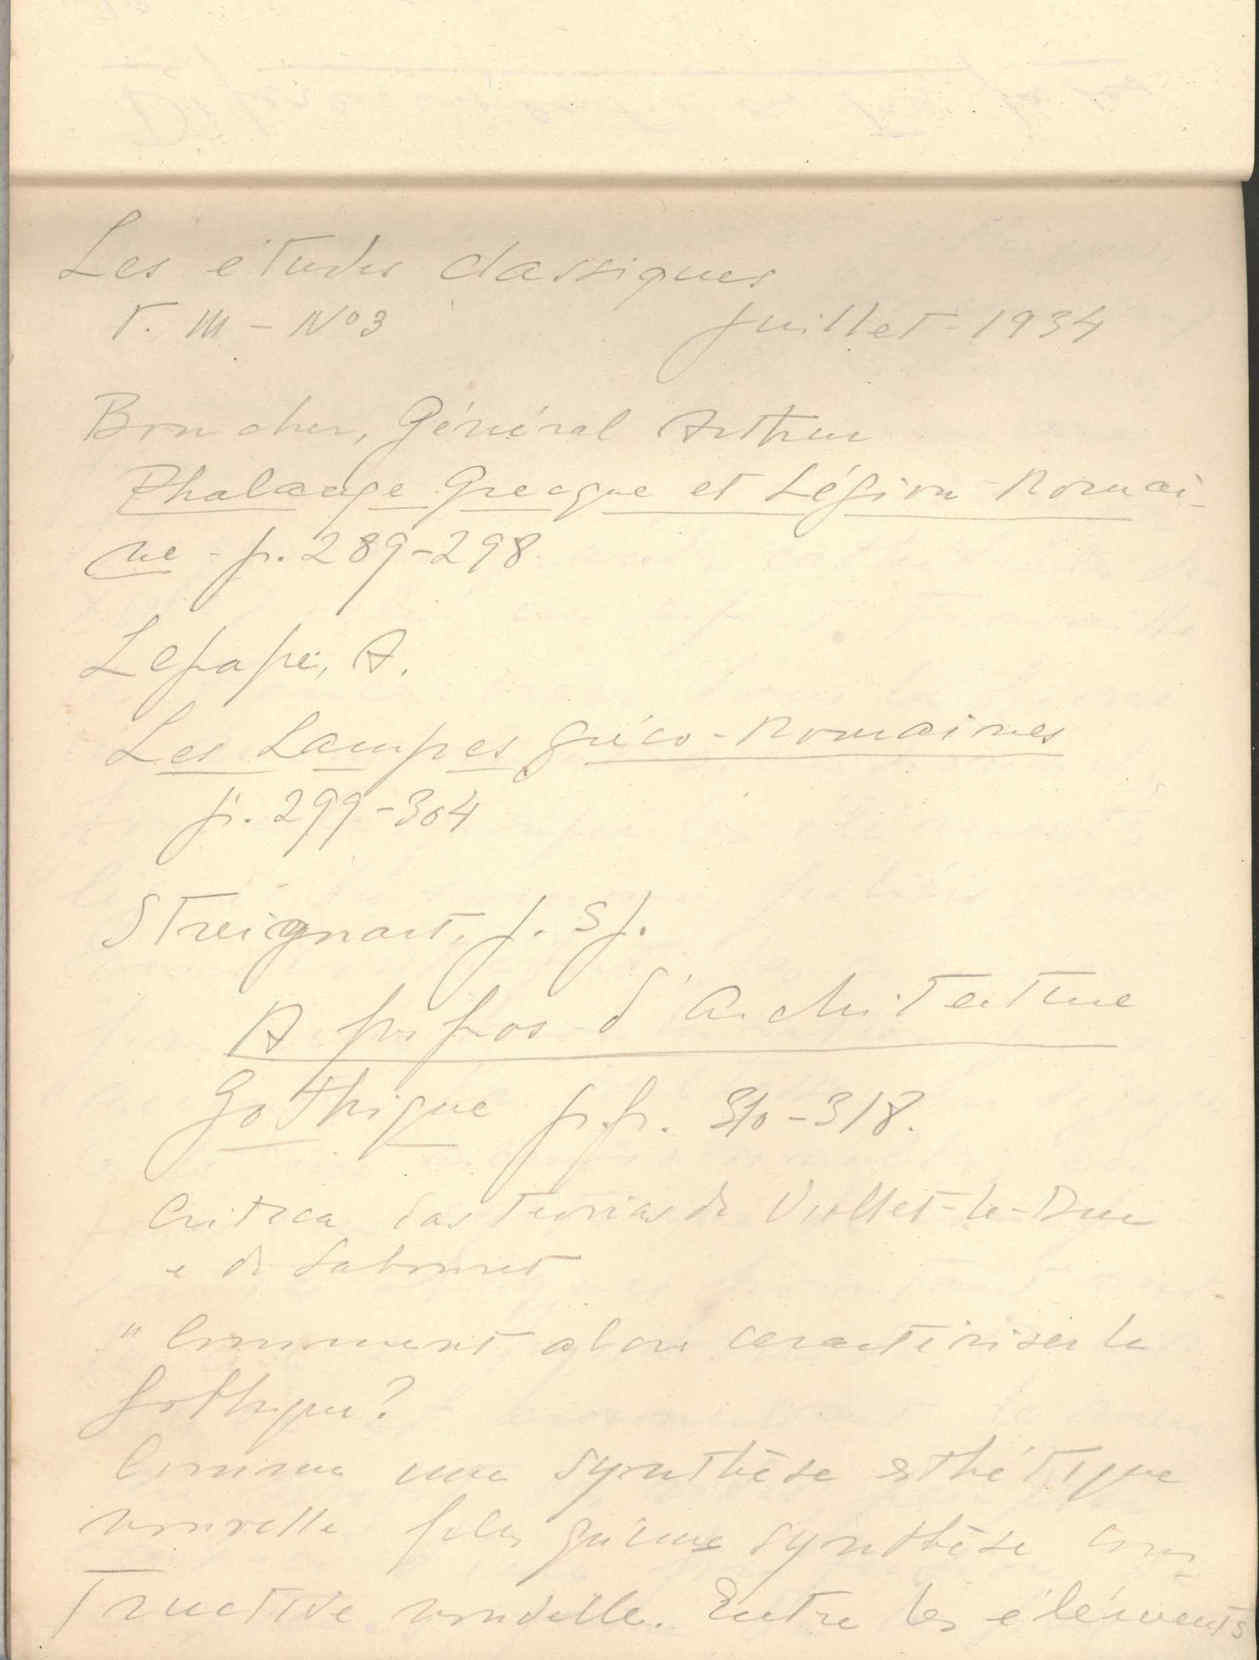 Les études classiques
T. III - Nº 3 Juillet - 1934
Boucher, Général Arthur
Phalange Grecque et Légion Romai-
ne - p. 289-298
Lepape, A.
Les Lampes gréco-Romaines
p. 299-304
Streignart, J. SJ.
A propos d'architecture
Gothique pp. 310-318.
Critica das teorias de Viollet-le-Duc
e de Sabouret
"Comment alors caractériser le
gothique?
Comme une synthèse esthétique
nouvelle plus qu'une synthèse cons-
tructive nouvelle. Entre les éléments